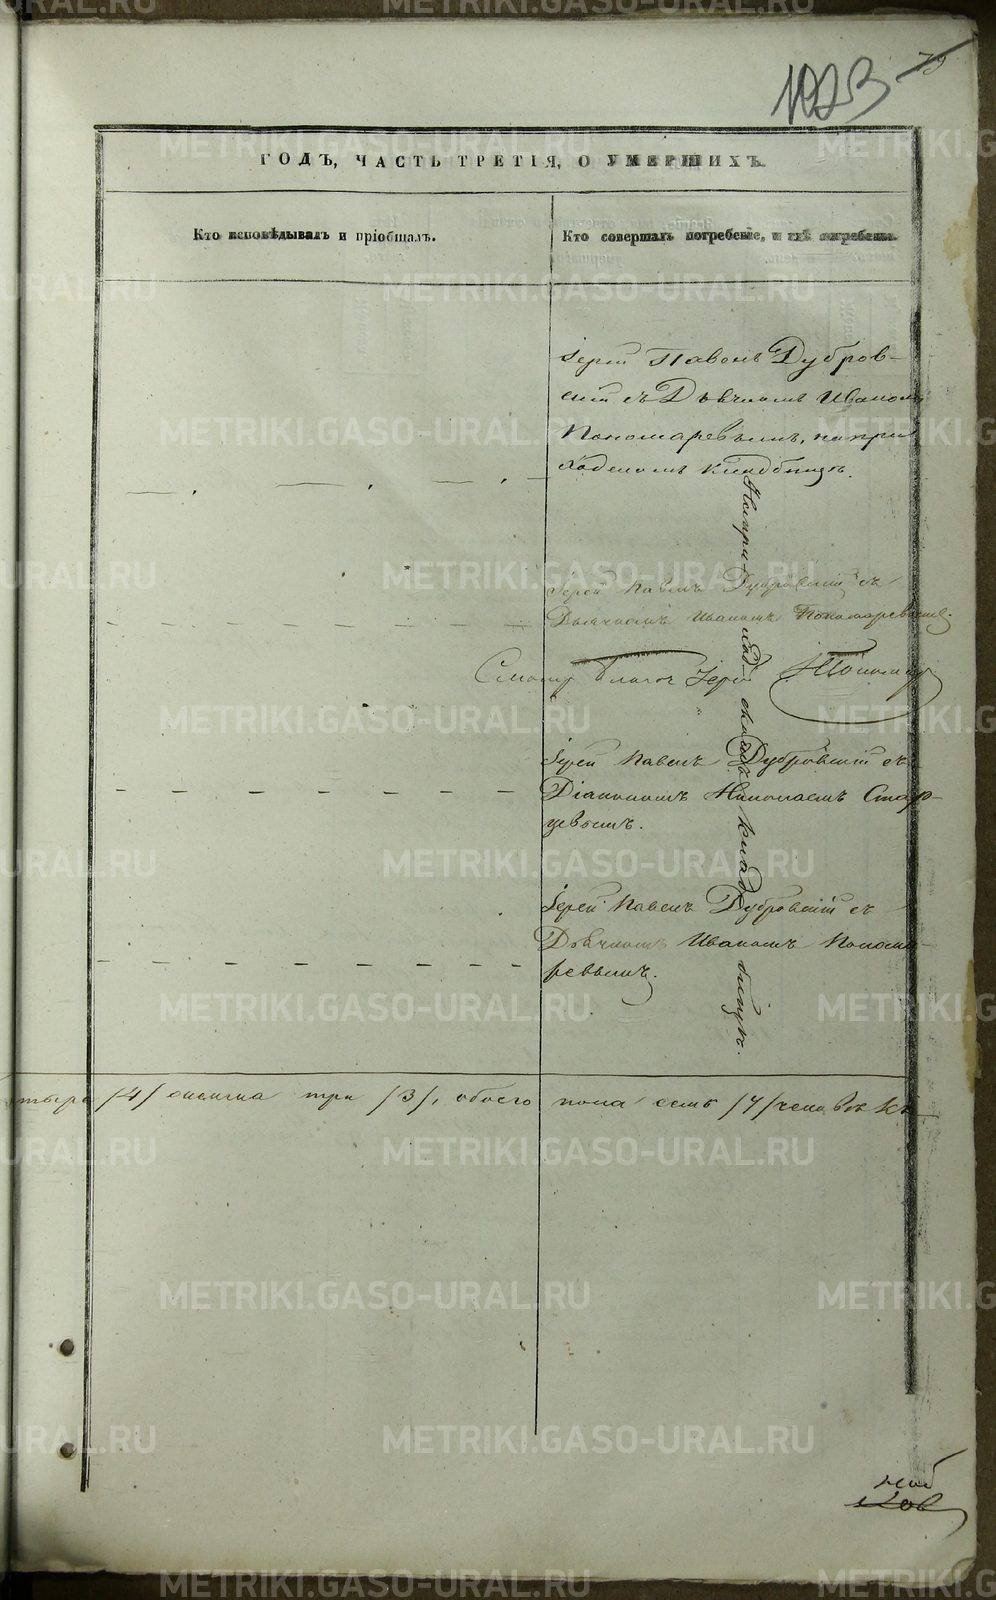 75
1023
ГОДЪ, ЧАСТЬ ТРЕТІЯ, О УМЕРШИХЪ.
Кто исповѣдывалъ и пріобщалъ.
Кто совершалъ погребеніе, и гдѣ погребены.
Іерей Павелъ Дубров-
скій съ Дьячкомъ Иваномъ
Пономаревымъ, на при
ходскомъ кладбищѣ.
Іерей Павелъ Дубровскій съ
Дьячкомъ Иваномъ Пономаревымъ.
Іерей
Іерей Павелъ Дубровскій съ
Діакономъ Николаемъ Стар-
цевымъ.
Іерей Павелъ Дубровскій съ
Дьячкомъ Иваномъ Понома-
ревымъ.
На приходскомъ кладбищѣ.
тыре /4/ женска три /3/, обоего пола семь /7/ человѣкъ
METRIKI.GASO-URAL.RU